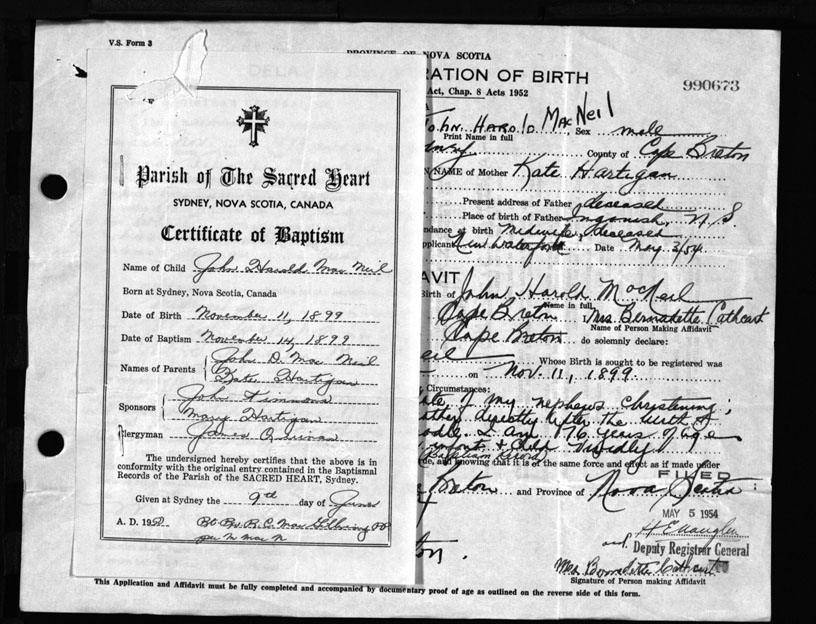 V.S. Form 3
PROVINCE OF NOVA SCOTIA
RATION OF BIRTH
Act, Chap. 8 Acts 1952
990673
Parish of The Sacred Heart
SYDNEY, NOVA SCOTIA, CANADA
Certificate of Baptism
Name of Child John Harold Mac Neil
Born at Sydney, Nova Scotia, Canada
Date of Birth November 11, 1899
Date of Baptism November 14, 1899
Names of Parents John D. Mac Neil
Kate Hartigan
Sponsors John
Mary Hartigan
Clergyman James Quinan
The undersigned hereby certifies that the above is in
conformity with the original entry contained in the Baptismal
Records of the Parish of the SACRED HEART, Sydney.
Given at Sydney the 9th day of June
A. D. 195
per
John Harold MacNeil, Sex male
Print Name in full
County of Cape Breton
NAME of Mother Kate Hartigan
Present address of Father deceased
Place of birth of Father Inganish, N.S.
ndance at birth Midwife, deceased
pplicant New Waterford Date May 3/54
AVIT
Birth of John Harold MacNeil
Name in full
Cape Breton I, Mrs. Bernadette Cathcart
Name of Person Making Affidavit
Cape Breton do solemnly declare:
eil Whose Birth is sought to be registered was
on Nov. 11, 1899.
Circumstances:
ate of my nephews christening;
directly after the birth of
I am 76 years of age
& Child
(Baptism Record)
de, and knowing that it is of the same force and effect as if made under
FILED
Breton and Province of Nova Scotia
MAY 5 1954
Deputy Registrar General
Mrs Bernadette Cathcart
Signature of Person making Affidavit
This Application and Affidavit must be fully completed and accompanied by documentary proof of age as outlined on the reverse side of this form.